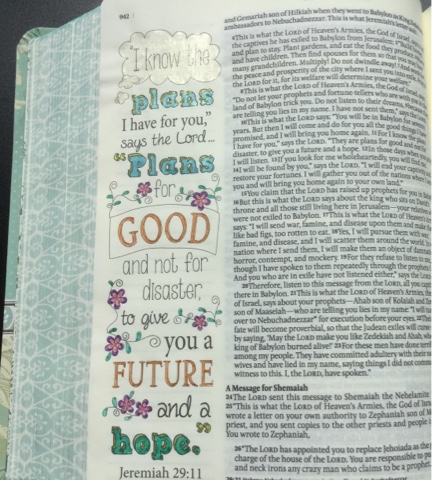 942
"I know the
plans
I have for you,"
says the Lord...
"Plans
for
GOOD
and not for
disaster,
to give
you a
FUTURE
and a
hope."
Jeremiah 29:11
and Gemariah son of Hilkiah when they went to Babylon as King
ambassadors to Nebuchadnezzar. This is what Jeremiah's
4This is what the LORD of Heaven's Armies, the God of Israel,
the captives he has exiled to Babylon from Jerusalem:
and plan to stay. Plant gardens, and eat the food they
and have children. Then find spouses for them so that you may
many grandchildren. Multiply! Do not dwindle away!
the peace and prosperity of the city where I sent you
the LORD for it, for its welfare will determine your welfare."
8This is what the LORD of Heaven's Armies, the God of
"Do not let your prophets and fortune-tellers who are with you
land of Babylon trick you. Do not listen to their dreams,
are telling you lies in my name. I have not sent them," says the
10This is what the LORD says: "You will be in Babylon for
years. But then I will come and do for you all the good things
promised, and I will bring you home again. 11For I know the
I have for you," says the LORD. "They are plans for good and
disaster, to give you a future and a hope. 12In those days when
I will listen. 13If you look for me wholeheartedly, you will find
14I will be found by you," says the LORD. "I will end your
restore your fortunes. I will gather you out of the nations
you and will bring you home again to your own land."
15You claim that the LORD has raised up prophets for you
16But this is what the LORD says about the king who sits on
throne and all those still living here in Jerusalem—your
were not exiled to Babylon. 17This is what the LORD of Heaven's
says: "I will send war, famine, and disease upon them and make
like bad figs, too rotten to eat. 18Yes, I will pursue them with
famine, and disease, and I will scatter them around the world.
nation where I send them, I will make them an object of
horror, contempt, and mockery. 19For they refuse to listen to
though I have spoken to them repeatedly through the prophets
And you who are in exile have not listened either," says the LORD.
20Therefore, listen to this message from the LORD, all you
there in Babylon. 21This is what the LORD of Heaven's Armies,
of Israel, says about your prophets—Ahab son of Kolaiah and
son of Maaseiah—who are telling you lies in my name: "I will
over to Nebuchadnezzar for execution before your eyes. 22Their
fate will become proverbial, so that the Judean exiles will curse
by saying, 'May the LORD make you like Zedekiah and Ahab,
king of Babylon burned alive!' 23For these men have done
among my people. They have committed adultery with their
wives and have lied in my name, saying things I did not
witness to this. I, the LORD, have spoken."
A Message for Shemaiah
24The LORD sent this message to Shemaiah the Nehelamite
25"This is what the LORD of Heaven's Armies, the God of
wrote a letter on your own authority to Zephaniah son of
priest, and you sent copies to the other priests and people
You wrote to Zephaniah,
26"The LORD has appointed you to replace Jehoiada as the
charge of the house of the LORD. You are responsible to
and neck irons any crazy man who claims to be a prophet.